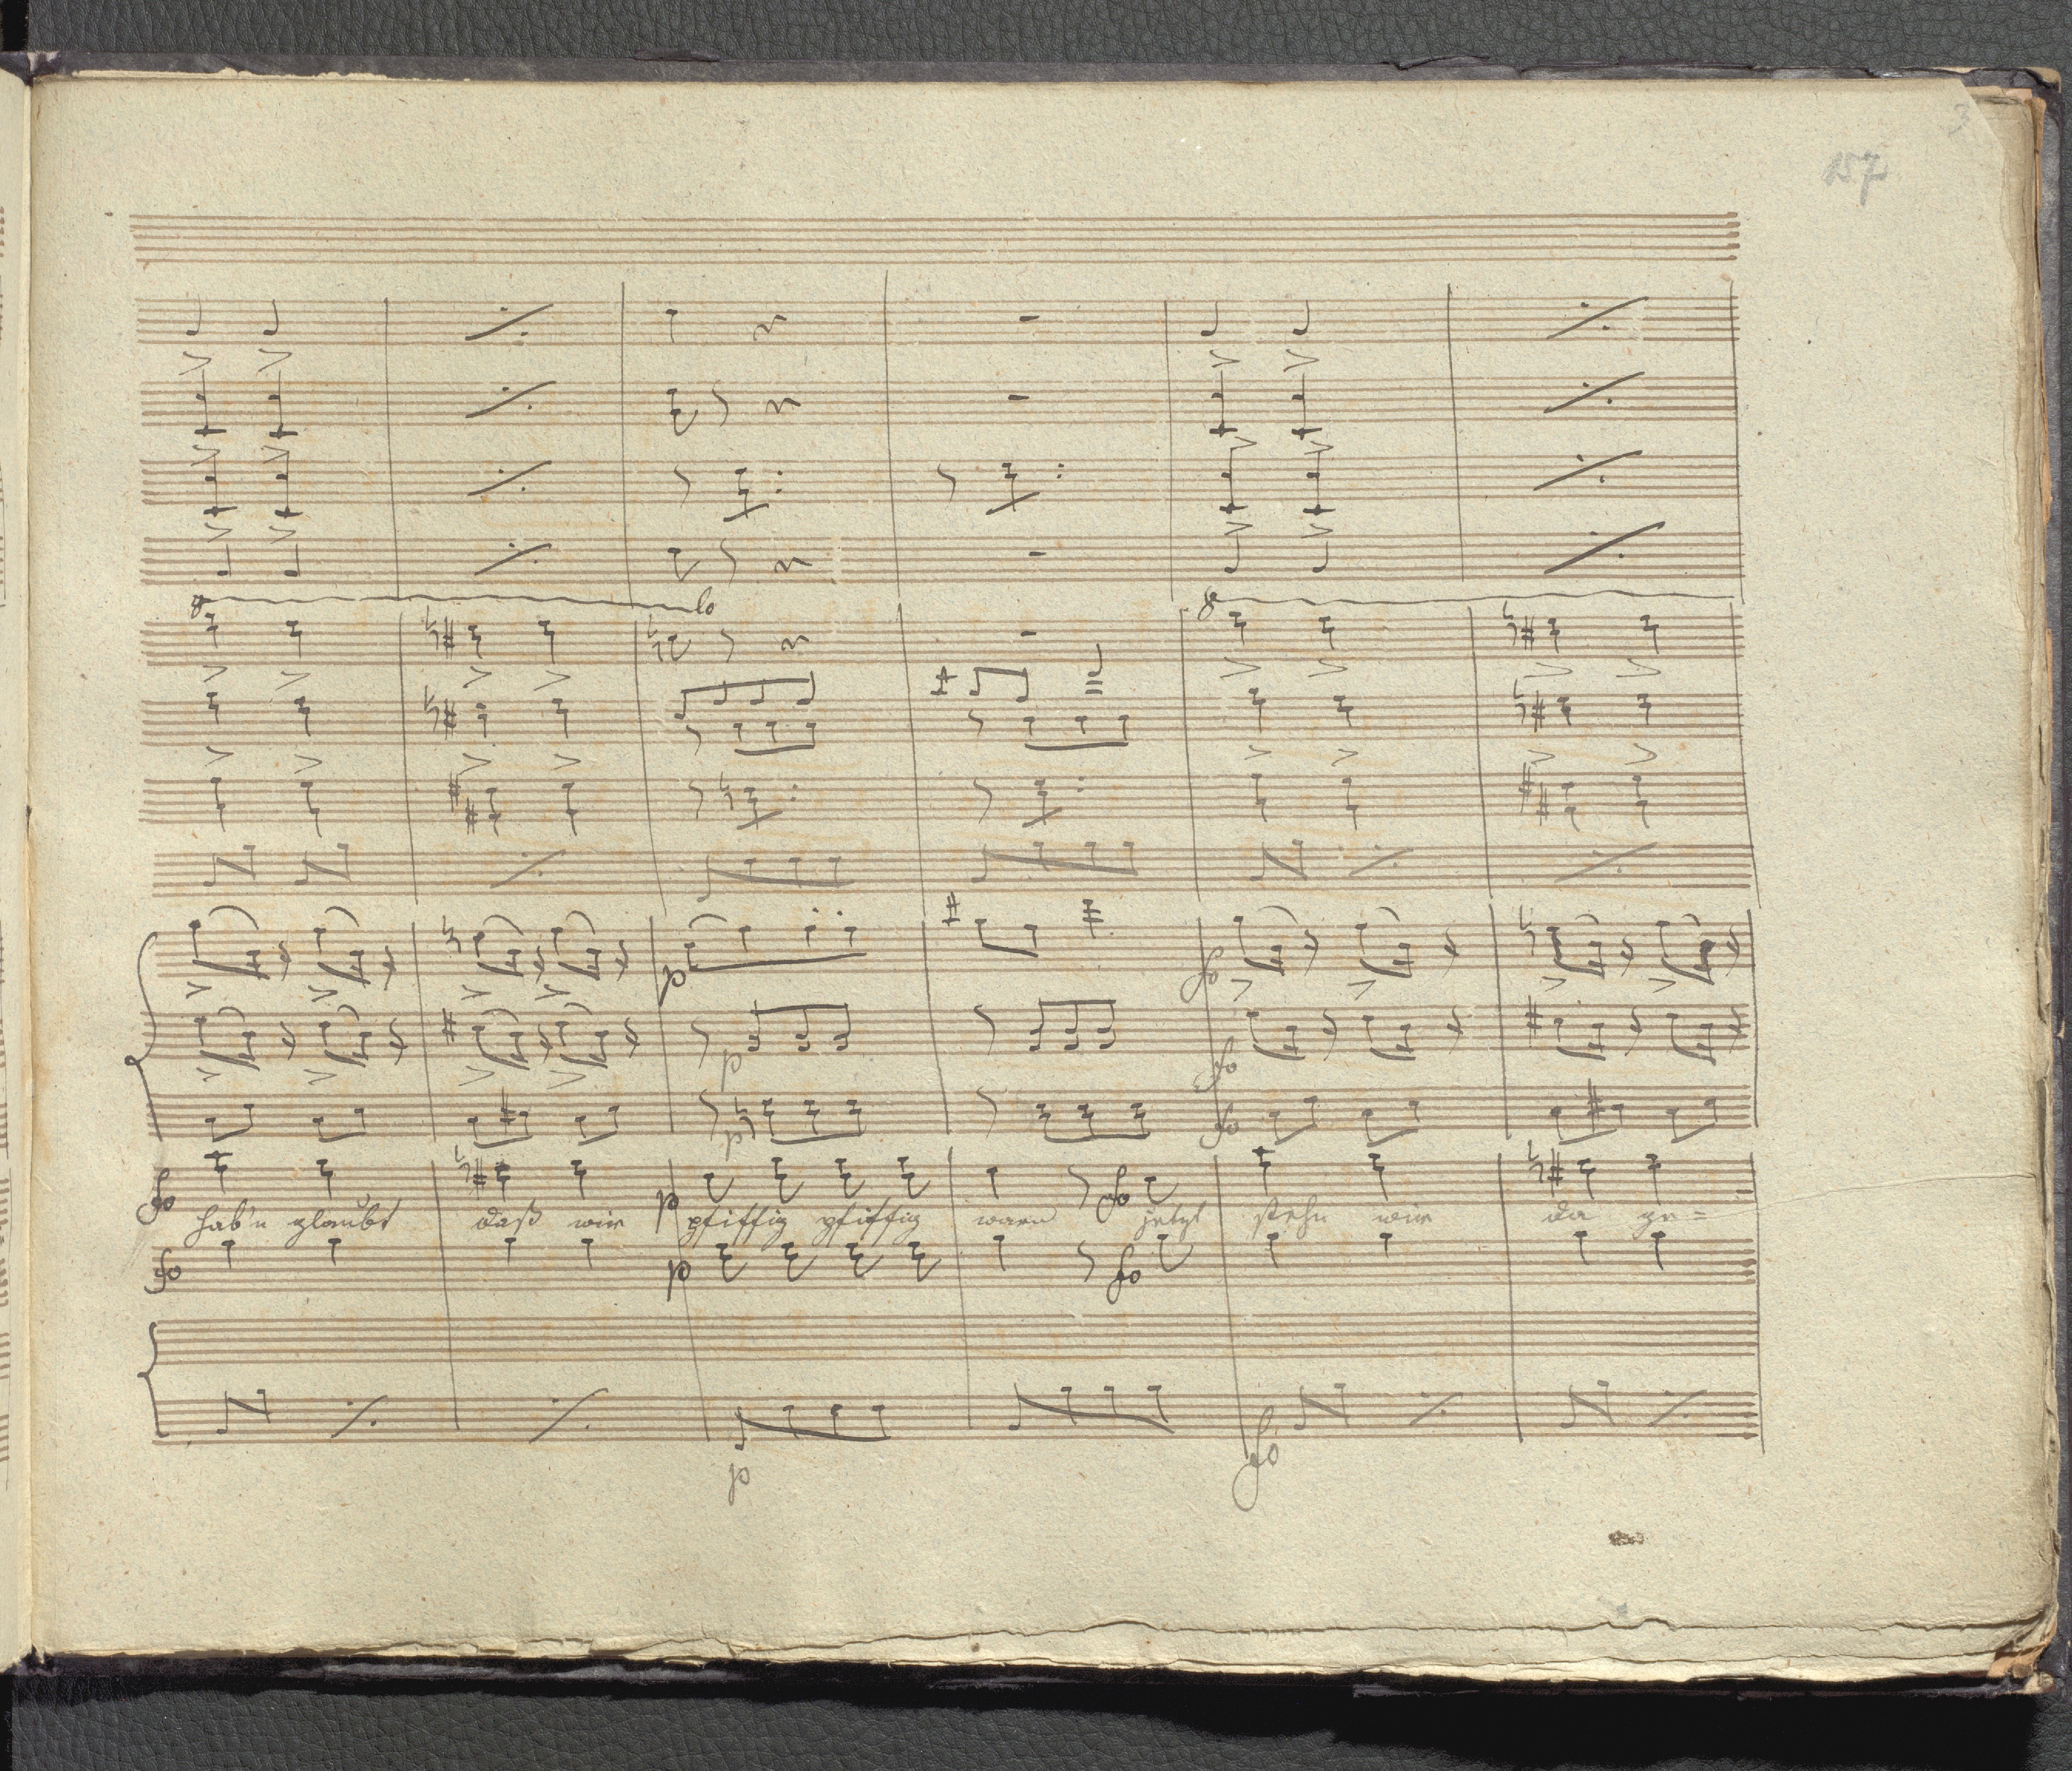 3
157
8 lo 8
p fo
p fo
p fo
fo p fo
hab'n glaubt daß wir pfiffig pfiffig waren jetzt stehn wir da ge=
fo p fo
p fo